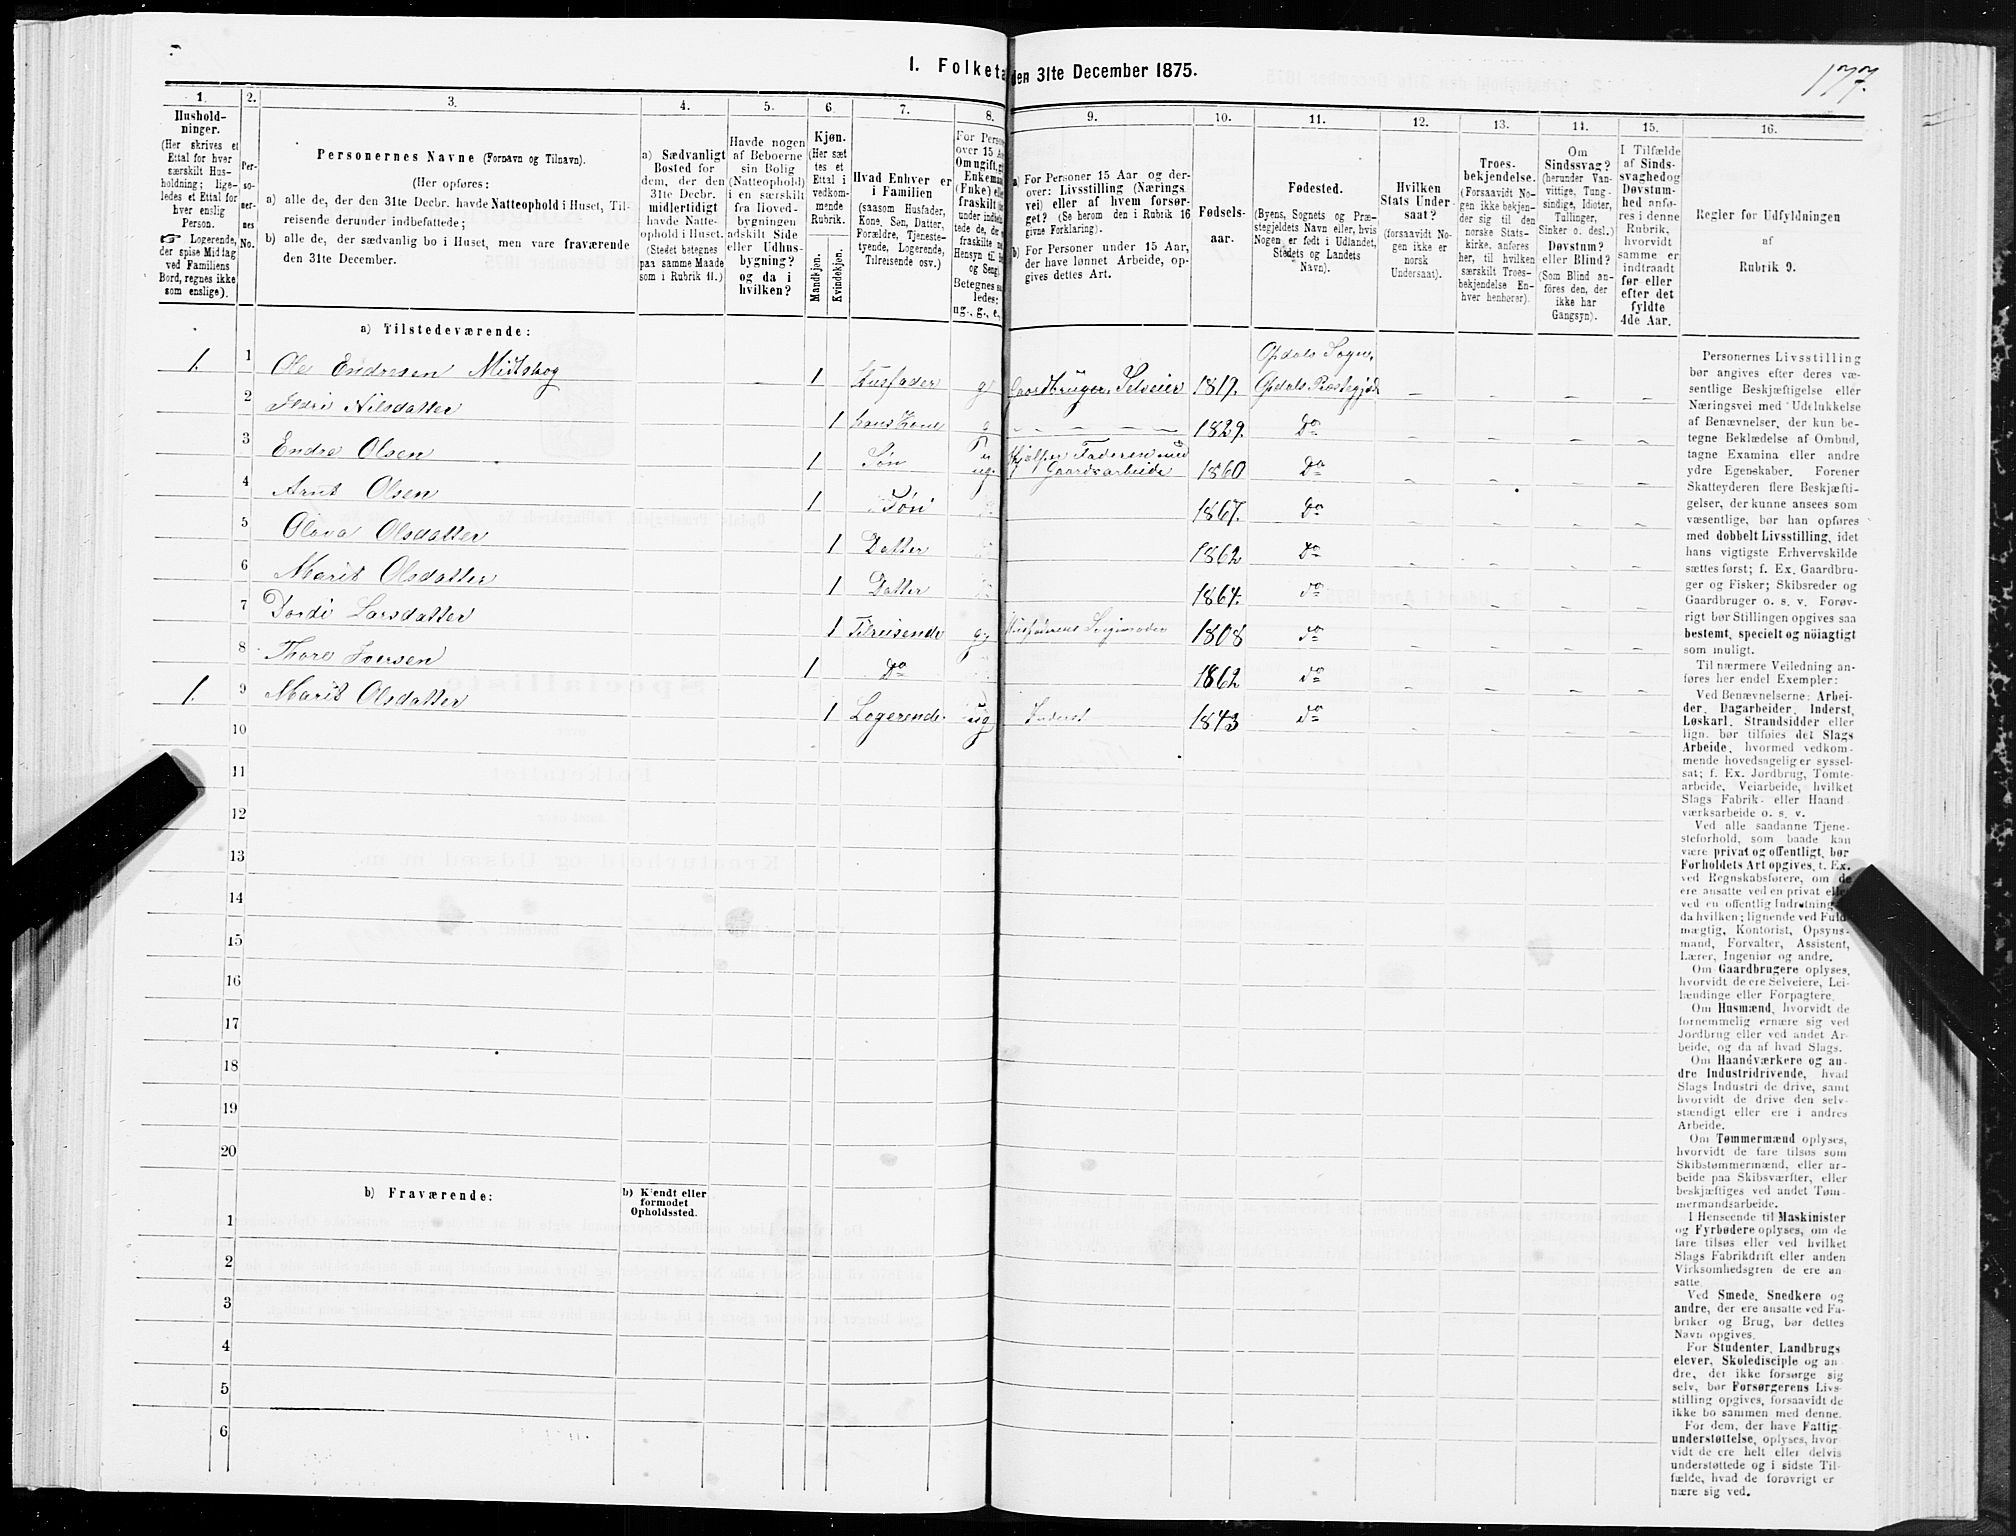 I. Folketæ den 31te December 1875.
177.
1. 2. 3. 4. 5. 6 7. 8. 9. 10. 11. 12. 13. 14. 15. 16.
Hushold-
ninger.
(Her skrives et
Ettal for hver
særskilt Hus-
holdning; lige-
ledes et Ettal for
hver enslig
Person.
☞ Logerende,
der spise Middag
ved Familiens
Bord, regnes ikke
som enslige).
Per-
so-
ner-
nes
No.
Personernes Navne (Fornavn og Tilnavn).
(Her opføres:
a) alle de, der den 31te Decbr. havde Natteophold i Huset, Til-
reisende derunder indbefattede;
b) alle de, der sædvanlig bo i Huset, men vare fraværende
den 31te December.
a) Sædvanligt
Bosted for
dem, der den
31te Decbr.
midlertidigt
havde Natte-
ophold i Huset.
(Stedet betegnes
paa samme Maade
som i Rubrik 11.)
Havde nogen
af Beboerne
sin Bolig
(Natteophold)
i en særskilt
fra Hoved-
bygningen
adskilt Side
eller Udhus-
bygning?
og da i
hvilken?
Kjøn.
(Her sæt
tes et
Ettal i
vedkom-
mende
Rubrik.
Mandkjøn.
Kvindekjøn.
Hvad Enhver er
i Familien
(saasom Husfader,
Kone, Søn, Datter,
Forældre, Tjeneste-
tyende, Logerende,
Tilreisende osv.)
For Perso
over 15 Aa
Om ugift, g
Enkema
(Enke) elle
fraskilt
under indbe
tede de, de
fraskilte
Hensyn til
og Seng.
Betegnes sa
ledes:
ug., g., e.,
a) For Personer 15 Aar og der-
over: Livsstilling (Nærings
vei) eller af hvem forsør-
get? (Se herom den i Rubrik 16
givne Forklaring).
b) For Personer under 15 Aar,
der have lønnet Arbeide, op-
gives dettes Art.
Fødsels-
aar.
Fødested.
(Byens, Sognets og Præ-
stegjeldets Navn eller, hvis
Nogen er født i Udlandet,
Stedets og Landets
Navn).
Hvilken
Stats Under-
saat?
(forsaavidt No-
gen ikke er
norsk
Undersaat).
Troes-
bekjendelse.
(Forsaavidt No-
gen ikke bekjen-
der sig til den
norske Stats-
kirke, anføres
her, til hvilken
særskilt Troes-
bekjendelse En-
hver henhører).
Om
Sindssvag?
(herunder Van-
vittige, Tung-
sindige, Idioter,
Tullinger,
Sinker o. desl.)
Døvstum?
eller Blind?
(Som Blind an-
føres den, der
ikke har
Gangsyn).
I Tilfælde
af Sinds-
svaghed og
Døvstum-
hed anfø-
res i denne
Rubrik,
hvorvidt
samme er
indtraadt
før eller
efter det
fyldte
4de Aar.
Regler for Udfyldningen
af
Rubrik 9.
a) Tilstedeværende:
1. 1 Ole Endresen Midtskog 1 Husfader g Gaardbruger, Selveier 1819. Opdals Sogn, Opdals Præstegjeld
2 Ildri Nilsdatter 1 hans Kone g 1829. Do
3 Endre Olsen 1 Søn ug. Hjelper Faderen med Gaardsarbeide 1860 Do
4 Arnt Olsen 1 Søn 1867. Do
5 Olava Olsdatter 1 Datter 1862 Do
6 Marit Olsdatter 1 Datter 1864. Do
7 Dordi Larsdatter 1 Tilreisende 1808 Do
8 Thore Iversen 1 Do 1862 Do
1. 9 Marit Olsdatter 1 Logerende ug Inderst 1843 Do
10
11
12
13
14
15
16
17
18
19
20
b) Fraværende:
b) Kjendt eller
formodet
Opholdssted.
1
2
3
4
5
6
Personernes Livsstilling
bør angives efter deres væ-
sentlige Beskjæftigelse eller
Næringsvei med Udelukkelse
af Benævnelser, der kun be-
tegne Beklædelse af Ombud,
tagne Examina eller andre
ydre Egenskaber. Forener
Skatteyderen flere Beskjæfti-
gelser, der kunne ansees som
væsentlige, bør han opføres
med dobbelt Livsstilling, idet
hans vigtigste Erhvervskilde
sættes først; f. Ex. Gaardbru-
ger og Fisker; Skibsreder og
Gaardbruger o. s. v. Forøv-
rigt bør Stillingen opgives saa
bestemt, specielt og nöiagtigt
som muligt.
Til nærmere Veiledning an-
føres her endel Exempler:
Ved Benævnelserne: Arbei-
der, Dagarbeider, Inderst,
Løskarl, Strandsidder eller
lign. bør tilføies det Slags
Arbeide, hvormed vedkom-
mende hovedsagelig er syssel-
sat; f. Ex. Jordbrug, Tomte-
arbeide, Veiarbeide, hvilket
Slags Fabrik- eller Haand-
værksarbeide o. s. v.
Ved alle saadanne Tjene-
steforhold, som baade kan
være privat og offentligt, bør
Forholdets Art opgives, t. Ex.
ved Regnskabsførere, om de
ere ansatte ved en privat eller
ved en offentlig Indretning og
da hvilken; lignende ved Fuld-
mægtig, Kontorist, Opsyns-
mand, Forvalter, Assistent,
Lærer, Ingeniør og andre.
Om Gaardbrugere oplyses,
hvorvidt de ere Selveiere, Lei-
lændinge eller Forpagtere.
Om Husmænd, hvorvidt de
fornemmelig ernære sig ved
Jordbrug eller ved andet Ar-
beide, og da af hvad Slags.
Om Haandværkere og an-
dre Industridrivende, hvad
Slags Industri de drive, samt
hvorvidt de drive den selv-
stændigt eller ere i andres
Arbeide.
Om Tømmermænd oplyses,
hvorvidt de fare tilsøs som
Skibstømmermænd, eller ar-
beide paa Skibsværfter, eller
beskjæftiges ved andet Tøm-
mermandsarbeide.
I Henseende til Maskinister
og Fyrbødere oplyses, om de
fare tilsøs eller ved hvilket
Slags Fabrikdrift eller anden
Virksomhedsgren de ere an-
satte.
Ved Smede, Snedkere og
andre, der ere ansatte ved Fa-
briker og Brug, bør dettes
Navn opgives.
For Studenter, Landbrugs
elever, Skoledisciple og an-
dre, der ikke forsørge sig
selv, bør Forsørgerens Livs-
stilling opgives, forsaavidt de
ikke bo sammen med denne.
For dem, der have Fattig-
understøttelse, oplyses, hvor-
vidt de ere helt eller delvis
understøttede og i sidste Til-
fælde, hvad de forøvrigt er
nære sig ved.